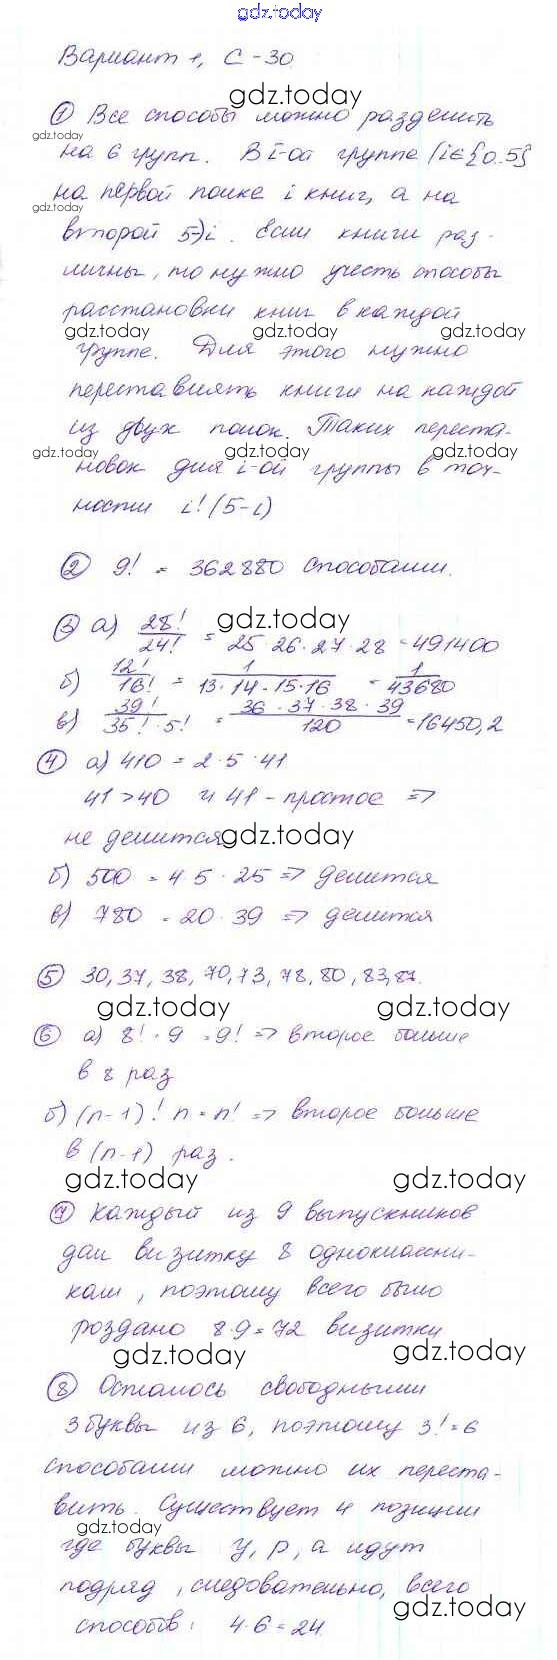 gdz.today
Вариант 1, С-30
gdz.today
① Все способы можно разделить
gdz.today
на 6 групп. В i-ой группе (i∈{0..5}
на первой полке i книг, а на
gdz.today
второй 5-i. Если книги раз-
личны, то нужно учесть способы
расстановки книг в каждой
gdz.today gdz.today gdz.today
группе. Для этого нужно
переставлять книги на каждой
из двух полок. Таких переста-
gdz.today gdz.today gdz.today
новок для i-ой группы в точ-
ности i!(5-i)
② 9! = 362880 способами.
gdz.today
③ а) 28!/24! = 25·26·27·28 = 491400
б) 12!/16! = 1/13·14·15·16 = 1/43680
в) 39!/35!·5! = 36·37·38·39/120 = 16450,2
④ а) 410 = 2·5·41
41>40 и 41 - простое =>
не делится gdz.today
б) 500 = 4·5·25 => делится
в) 780 = 20·39 => делится
⑤ 30, 37, 38, 70, 73, 78, 80, 83, 87.
gdz.today gdz.today
⑥ а) 8!·9 = 9! => второе больше
в 8 раз
б) (n-1)! n = n! => второе больше
в (n-1) раз.
gdz.today gdz.today
⑦ Каждый из 9 выпускников
дал визитку 8 одноклассни-
кам, поэтому всего было
роздано 8·9=72 визитки
gdz.today gdz.today
⑧ Осталось свободными
3 буквы из 6, поэтому 3!=6
способами можно их переста-
вить. Существует 4 позиции
gdz.today
где буквы у, р, а идут
подряд, следовательно, всего
gdz.today
способов: 4·6=24.